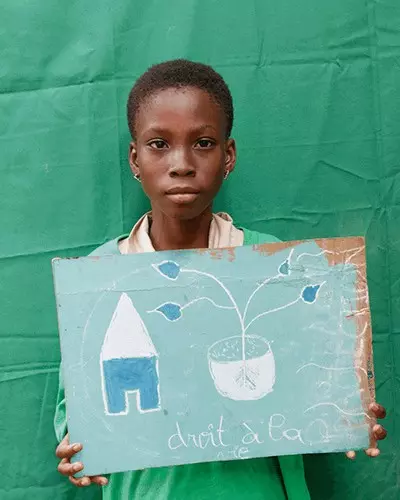 droit à la
vie